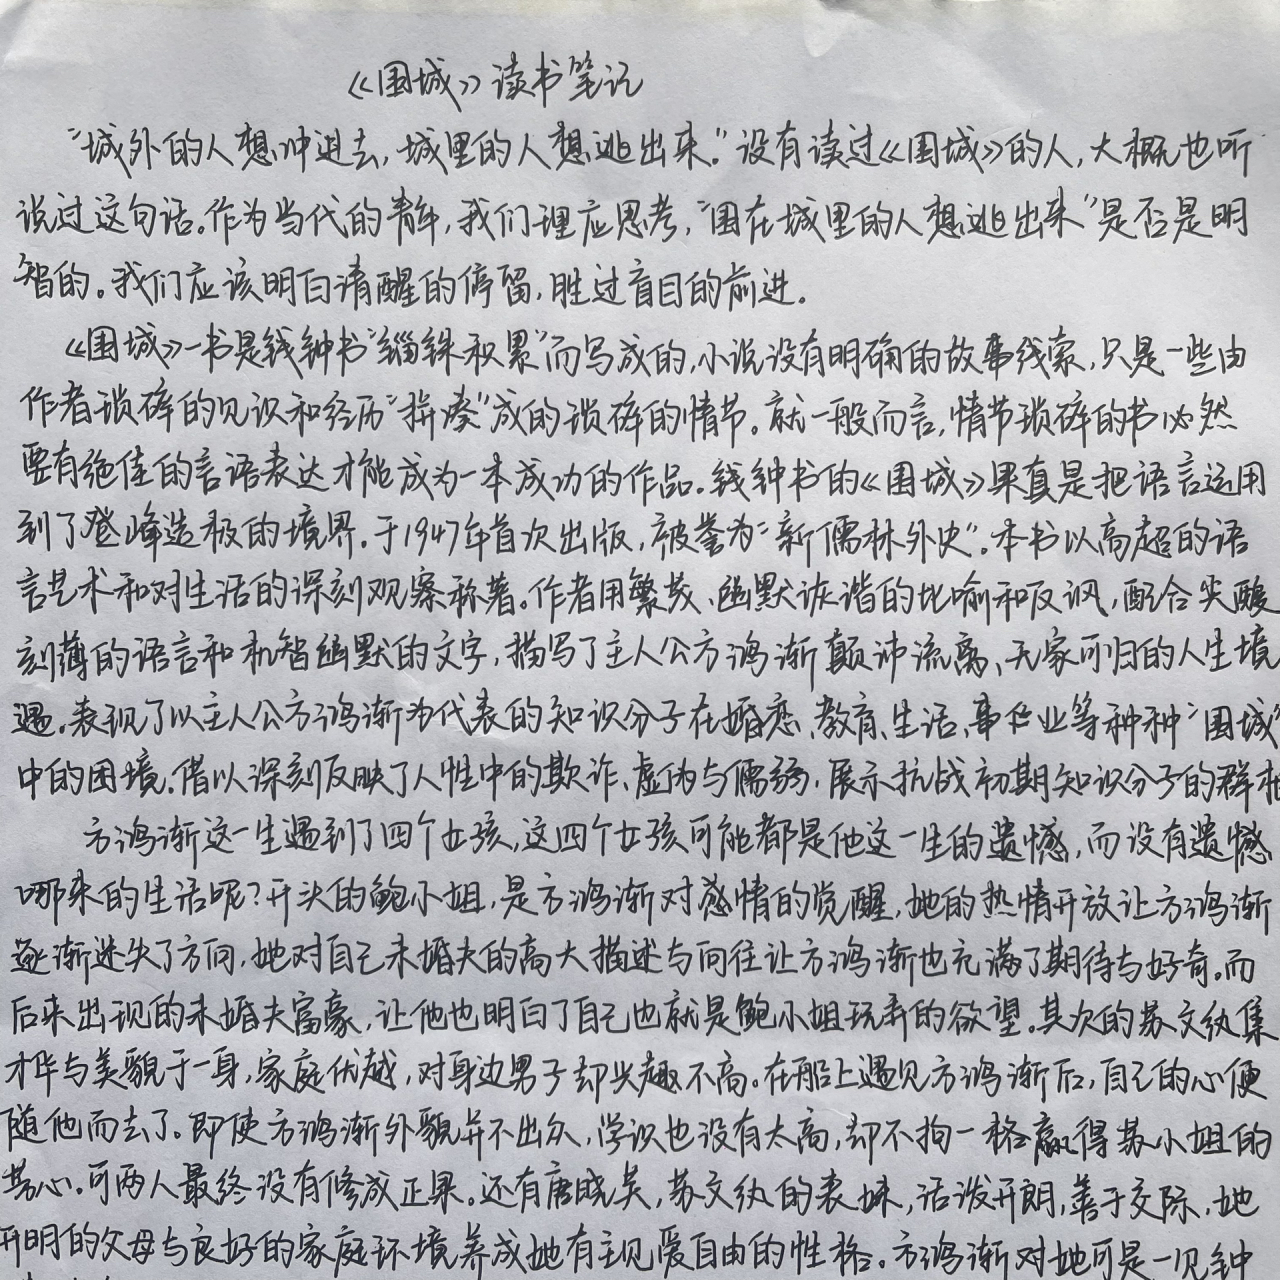 《围城》读书笔记
“城外的人想冲进去,城里的人想逃出来。”没有读过《围城》的人,大概也听
说过这句话。作为当代的青年,我们理应思考,“围在城里的人想逃出来”是否是明
智的。我们应该明白清醒的停留,胜过盲目的前进。
《围城》一书是钱钟书“锱铢积累”而写成的,小说没有明确的故事线索,只是一些由
作者琐碎的见识和经历“拼凑”成的琐碎的情节。就一般而言,情节琐碎的书必然
要有绝佳的言语表达才能成为一本成功的作品。钱钟书的《围城》果真是把语言运用
到了登峰造极的境界。于1947年首次出版,被誉为“新儒林外史”。本书以高超的语
言艺术和对生活的深刻观察称著。作者用繁茂、幽默诙谐的比喻和反讽,配合尖酸
刻薄的语言和机智幽默的文字,描写了主人公方鸿渐颠沛流离、无家可归的人生境
遇。表现了以主人公方鸿渐为代表的知识分子在婚恋、教育、生活、事业等种种“围城”
中的困境。借以深刻反映了人性中的欺诈、虚伪与懦弱,展示抗战初期知识分子的群相
方鸿渐这一生遇到了四个女孩,这四个女孩可能都是他这一生的遗憾,而没有遗憾
哪来的生活呢?开头的鲍小姐,是方鸿渐对感情的觉醒,她的热情开放让方鸿渐
逐渐迷失了方向,她对自己未婚夫的高大描述与向往让方鸿渐也充满了期待与好奇。而
后来出现的未婚夫富豪,让他也明白了自己也就是鲍小姐玩弄的欲望。其次的苏文纨集
才华与美貌于一身,家庭优越,对身边男子却兴趣不高。在船上遇见方鸿渐后,自己的心便
随他而去了。即使方鸿渐外貌并不出众,学识也没有太高,却不拘一格赢得苏小姐的
芳心。可两人最终没有修成正果。还有唐晓芙,苏文纨的表妹,活泼开朗,善于交际,她
开明的父母与良好的家庭环境养成她有主见爱自由的性格。方鸿渐对她可是一见钟